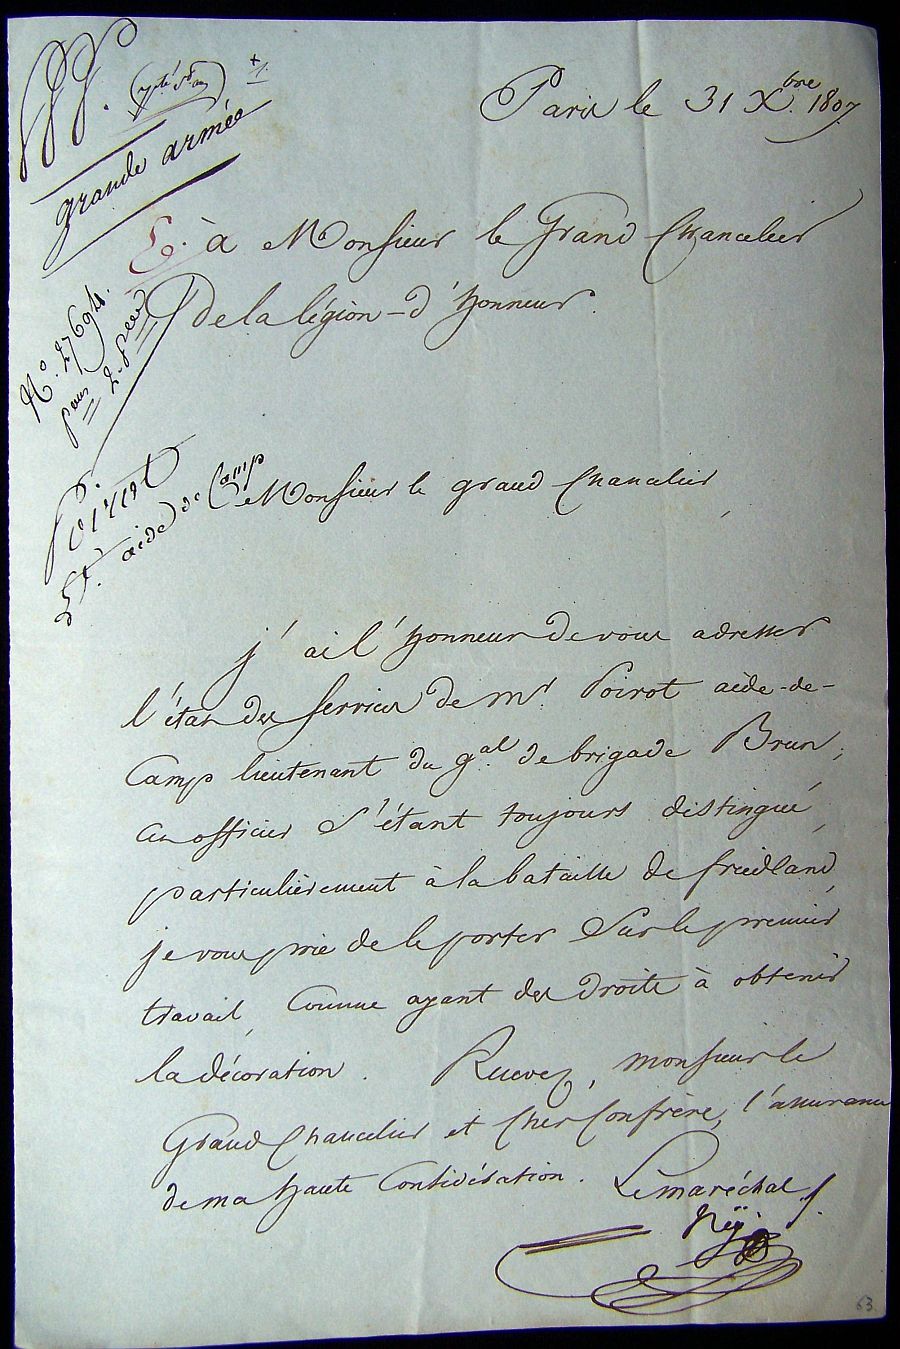 grande armée
Paris le 31 Xbre. 1807
à Monsieur le Grand Chancelier
De la légion-d'honneur.
N°. 27694.
pour 2.
Poirot
Lt. aide de Camp
Monsieur le grand Chancelier
j'ai l'honneur de vous adresser
l'état des services de mr. Poirot aide-de-
Camp lieutenant du gal. de brigade Brun;
cet officier s'étant toujours distingué,
particulièrement à la bataille de friedland,
je vous prie de le porter sur le premier
travail, comme ayant des droits à obtenir
la décoration. Recevez, monsieur le
Grand Chancelier et cher Confrère, l'assurance
de ma haute Considération. Le maréchal
Ney
63.